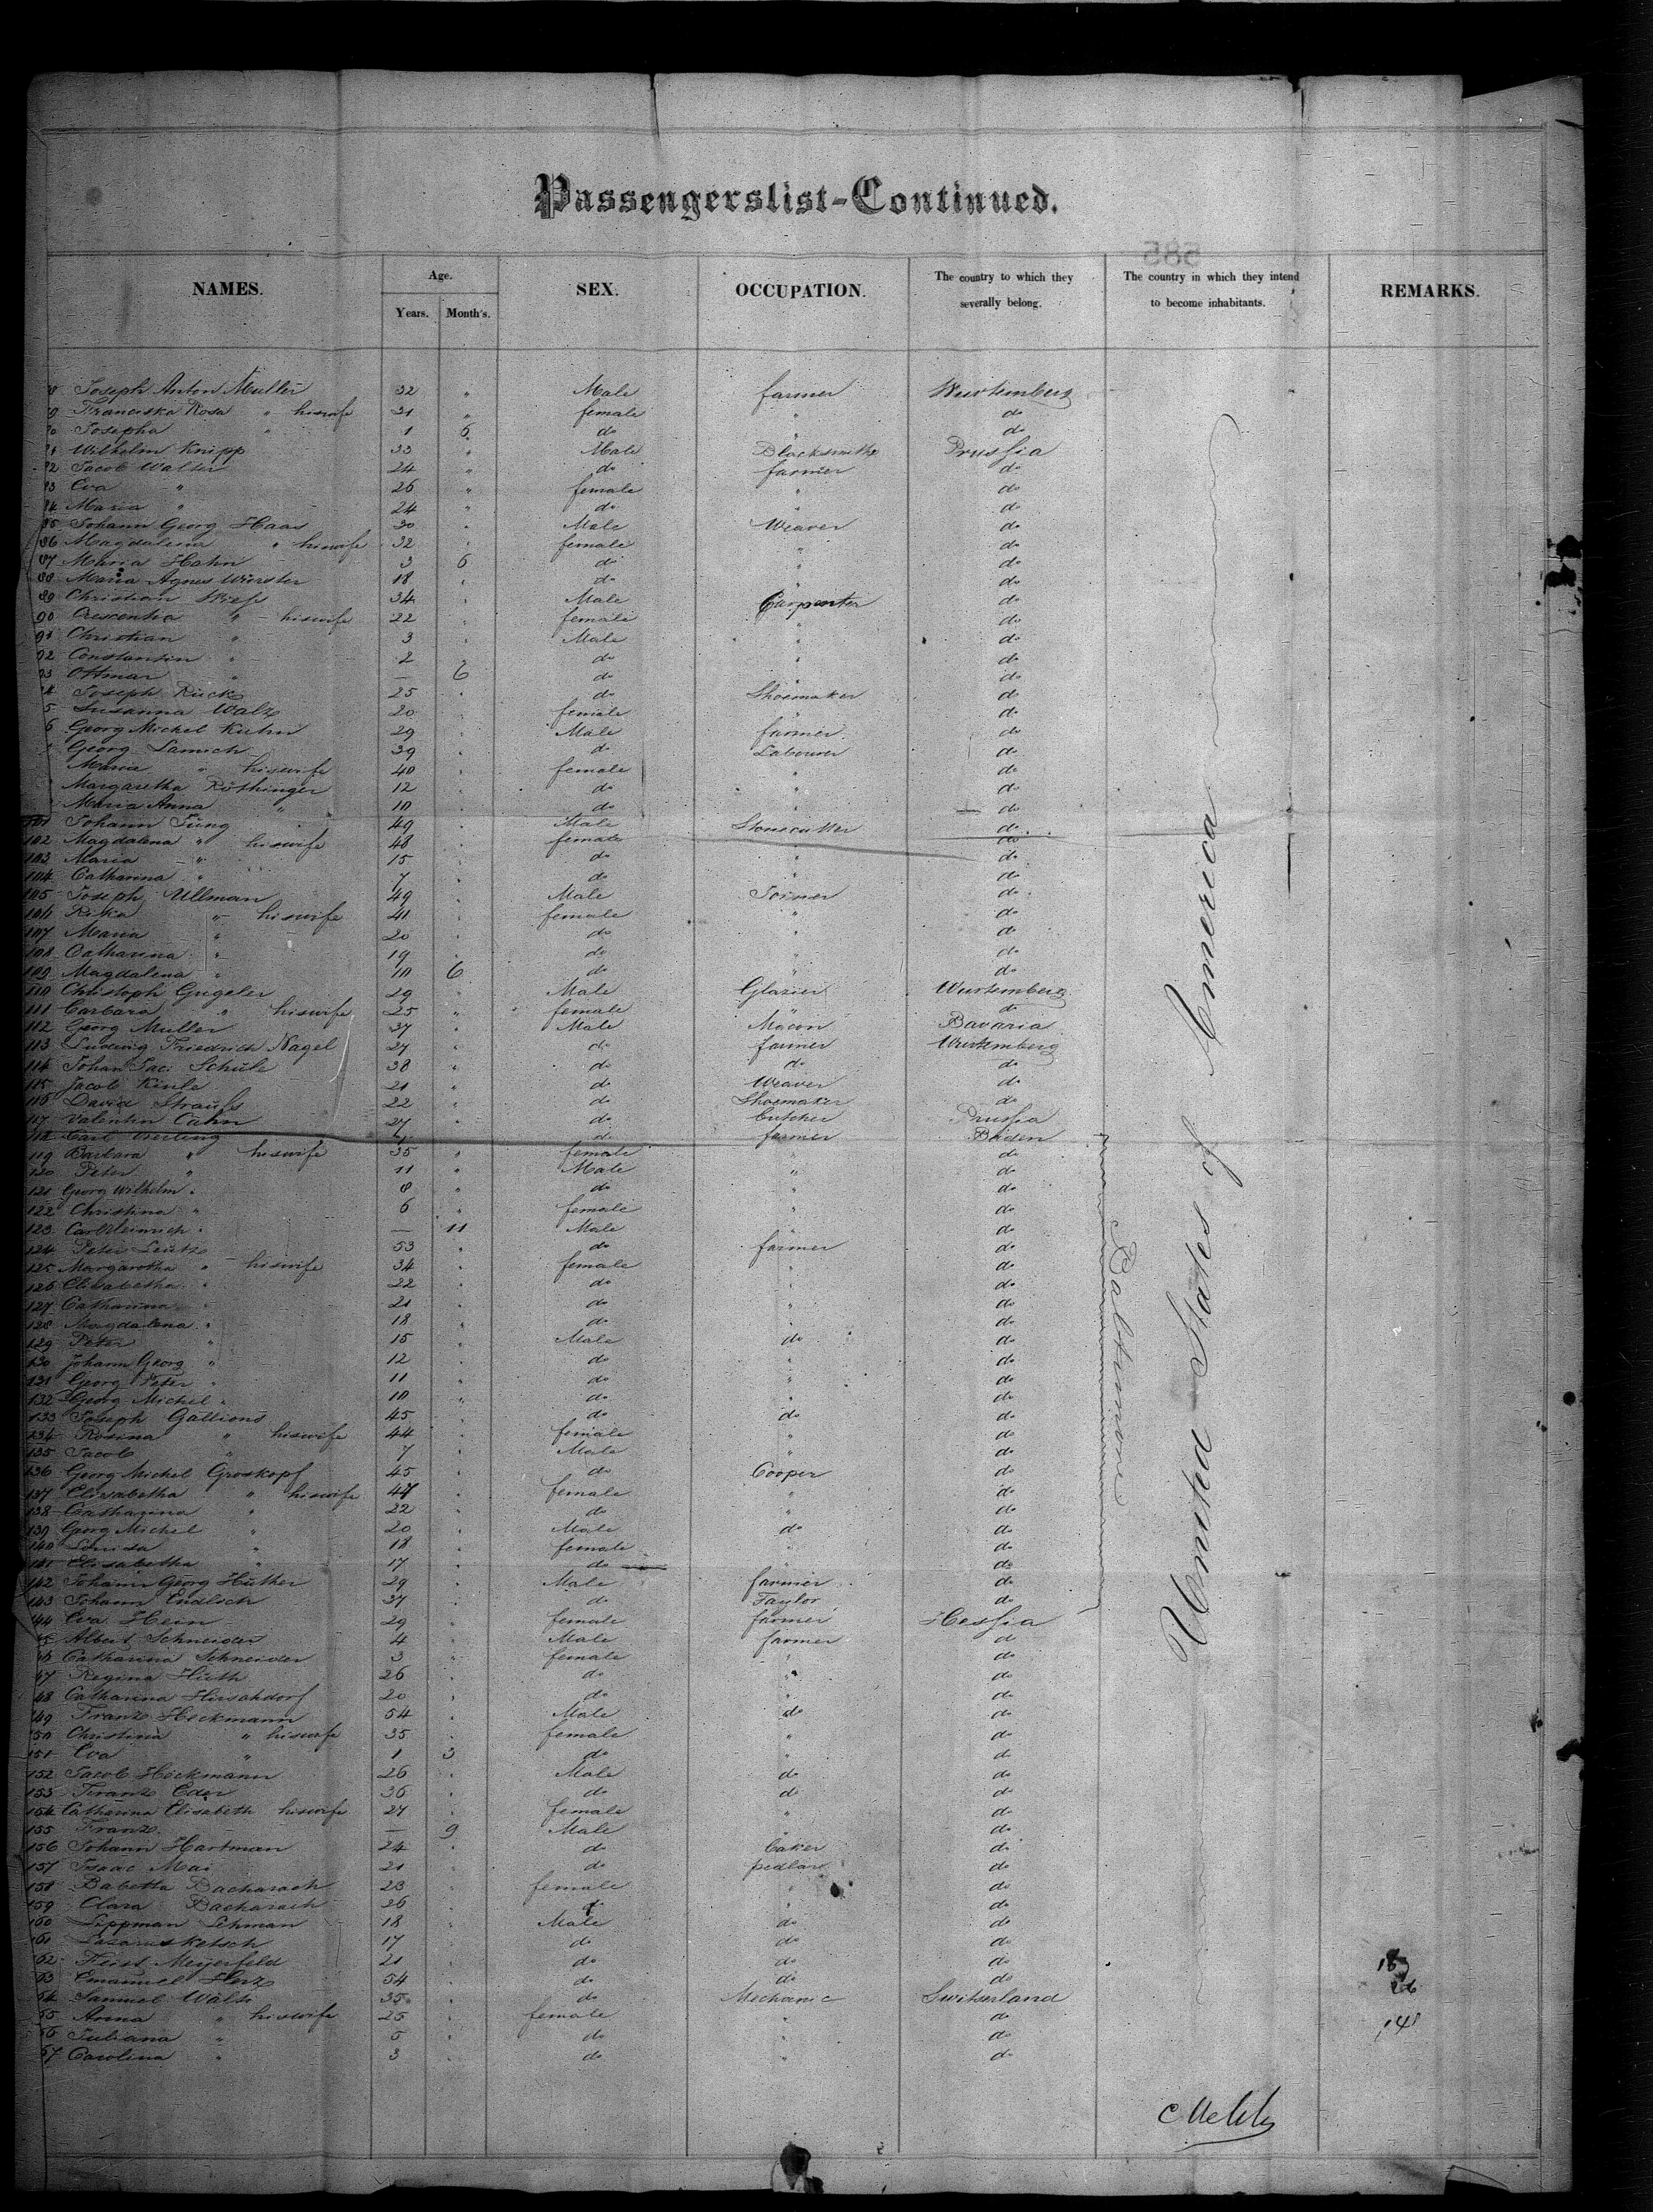 Passengerslist-Continued.
NAMES. Age. Years. Month's. SEX. OCCUPATION. The country to which they severally belong. The country in which they intend to become inhabitants. REMARKS.
Joseph Anton Muller 32 " Male farmer Wurtemberg
Franciska Rosa " his wife 31 " female " do
Josepha " 1 6 do " do
Wilhelm Knipp 33 " Male Blacksmith Prussia
Jacob Walter 24 " do farmer do
Eva " 26 " female " do
Maria " 24 " do " do
85 Johann Georg Haas 30 " Male Weaver do
86 Magdalena " his wife 32 " female " do
87 Maria Hahn 3 6 do " do
88 Maria Agnes Wurster 18 " do " do
89 Christian 34 " Male Carpenter do
90 Crescentia " his wife 22 " female " do
91 Christian " 3 " Male " do
92 Constantin " 2 " do " do
93 Ottmar " — 6 do " do
Joseph Rück 25 " do Shoemaker do
5 Susanna Walz 20 " female " do
6 Georg Michel Kuhn 29 " Male farmer do
Georg Lamich 39 " do Labourer do
Maria " his wife 40 " female " do
Margaretha Röthinger 12 " do " do
Maria Anna " 10 " do " do
101 Johann Jung 49 " Male Stonecutter do
102 Magdalena " his wife 48 " female " do
103 Maria " 15 " do " do
104 Catharina " 7 " do " do
105 Joseph Ullman 49 " Male Joiner do
106 Rika " his wife 41 " female " do
107 Maria " 20 " do " do
108 Catharina " 19 " do " do
109 Magdalena " 10 6 do " do
110 Christoph Gugeler 29 " Male Glazier Wurtemberg
111 Barbara " his wife 25 " female " do
112 Georg Muller 37 " Male Macon Bavaria
113 Ludwig Friedrich Nagel 27 " do farmer Wurtemberg
114 Johan Jac: Schule 38 " do do do
115 Jacob Kinle 21 " do Weaver do
116 David Strauss 22 " do Shoemaker do
117 Valentin Cahn 27 " do butcher Prussia
118 Carl do farmer Baden
119 Barbara " his wife 35 " female " do
120 Peter " 11 " Male " do
121 Georg Wilhelm " 8 " do " do
122 Christina " 6 " female " do
123 Carl Heinrich " — 11 Male " do
124 Peter Leutz 53 " do farmer do
125 Margaretha " his wife 34 " female " do
126 Elisabetha " 22 " do " do
127 Catharina " 21 " do " do
128 Magdalena " 18 " do " do
129 Peter " 15 " Male do do
130 Johann Georg " 12 " do " do
131 Georg Peter " 11 " do " do
132 Georg Michel " 10 " do " do
133 Joseph Gallions 45 " do do do
134 Rosina " his wife 44 " female " do
135 Jacob " 7 " Male " do
136 Georg Michel Groskopf 45 " do Cooper do
137 Elisabetha " his wife 47 " female " do
138 Catharina " 22 " do " do
139 Georg Michel " 20 " Male do do
140 Louisa " 18 " female " do
141 Elisabetha " 17 " do " do
142 Johann Georg Huther 29 " Male farmer do
143 Johann Endlich 37 " do Taylor do
144 Eva Hein 29 " female farmer Hessia
45 Albert Schneider 4 " Male farmer do
46 Catharina Schneider 3 " female " do
47 Regina Huth 26 " do " do
48 Catharina Hirschdorf 20 " do " do
149 Franz Heckmann 54 " Male do do
150 Christina " his wife 35 " female " do
151 Eva " 1 3 do " do
152 Jacob Heckmann 26 " Male do do
153 Franz Eder 36 " do do do
154 Catharina Elisabeth his wife 27 " female " do
155 Franz — 9 Male " do
156 Johann Hartman 24 " do baker do
157 Isaac Mai 21 " do pedlar do
158 Babetta Bacharach 23 " female " do
159 Clara Bacharach 26 " do " do
160 Lippman Lehman 18 " Male do do
161 Lazarus Ketsch 17 " do do do
62 Feist Meyerfeld 21 " do do do
63 Emanuel Herz 54 " do do do
64 Samuel Walti 35 " do Mechanic Switserland
65 Anna " his wife 25 " female " do
66 Juliana " 5 " do " do
67 Carolina " 3 " do " do
United States of America
Baltimore
26
141